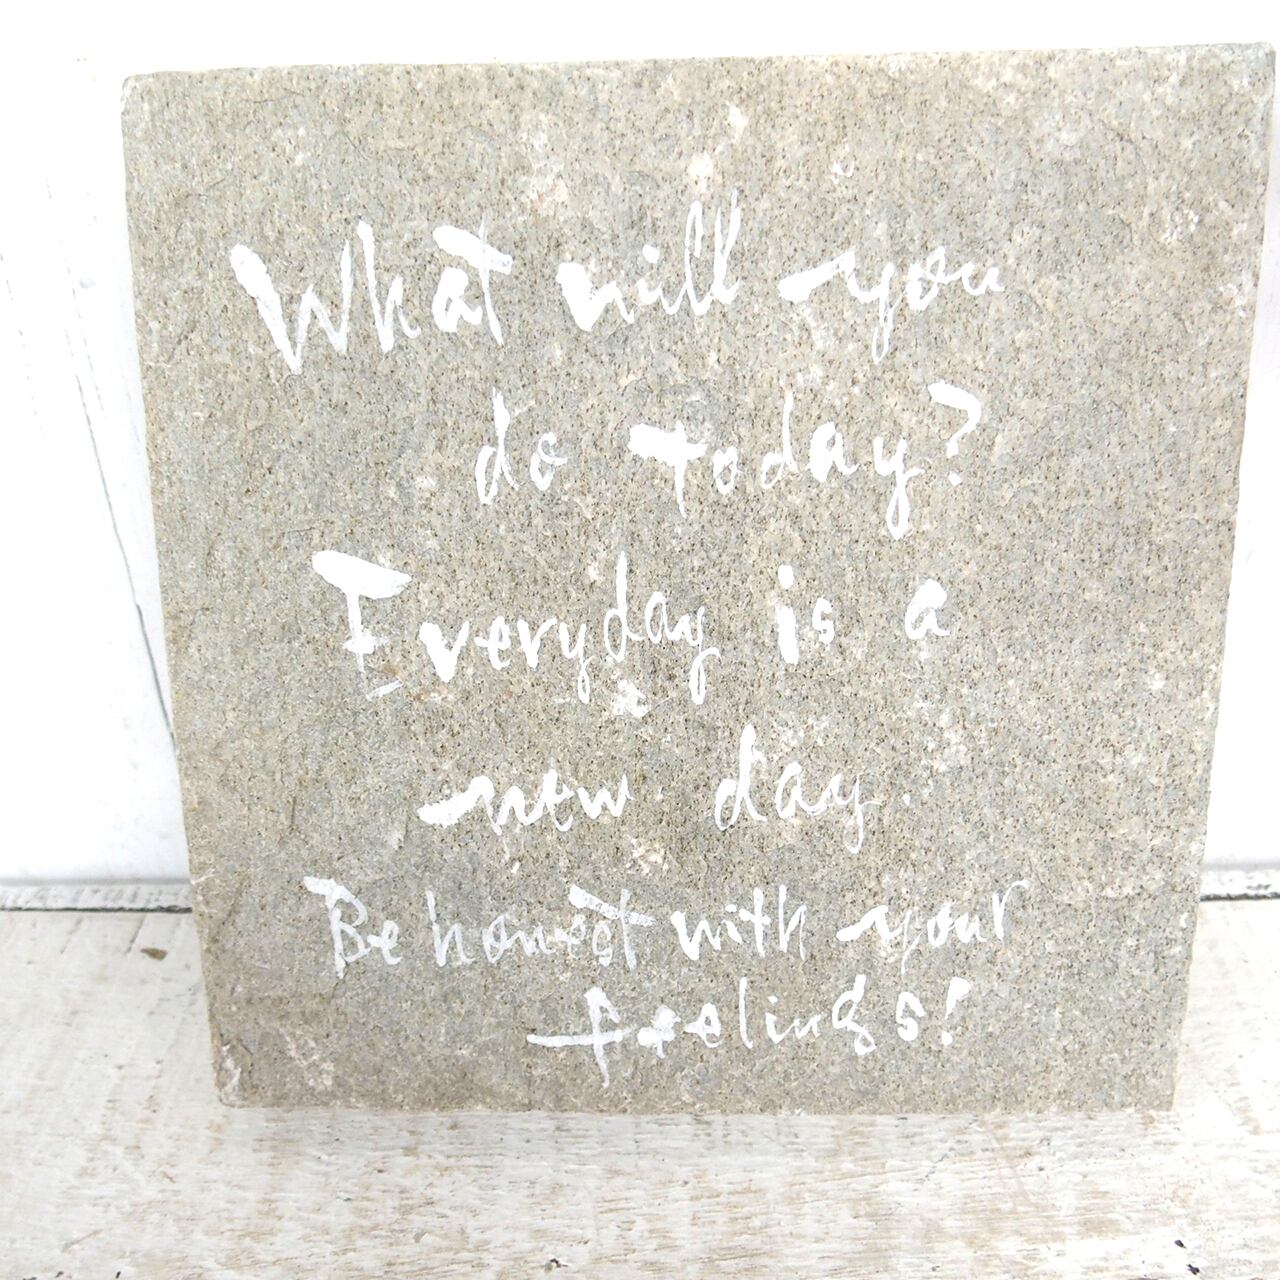 What will you
do today?
Everyday is a
new day.
Be honest with your
feelings!